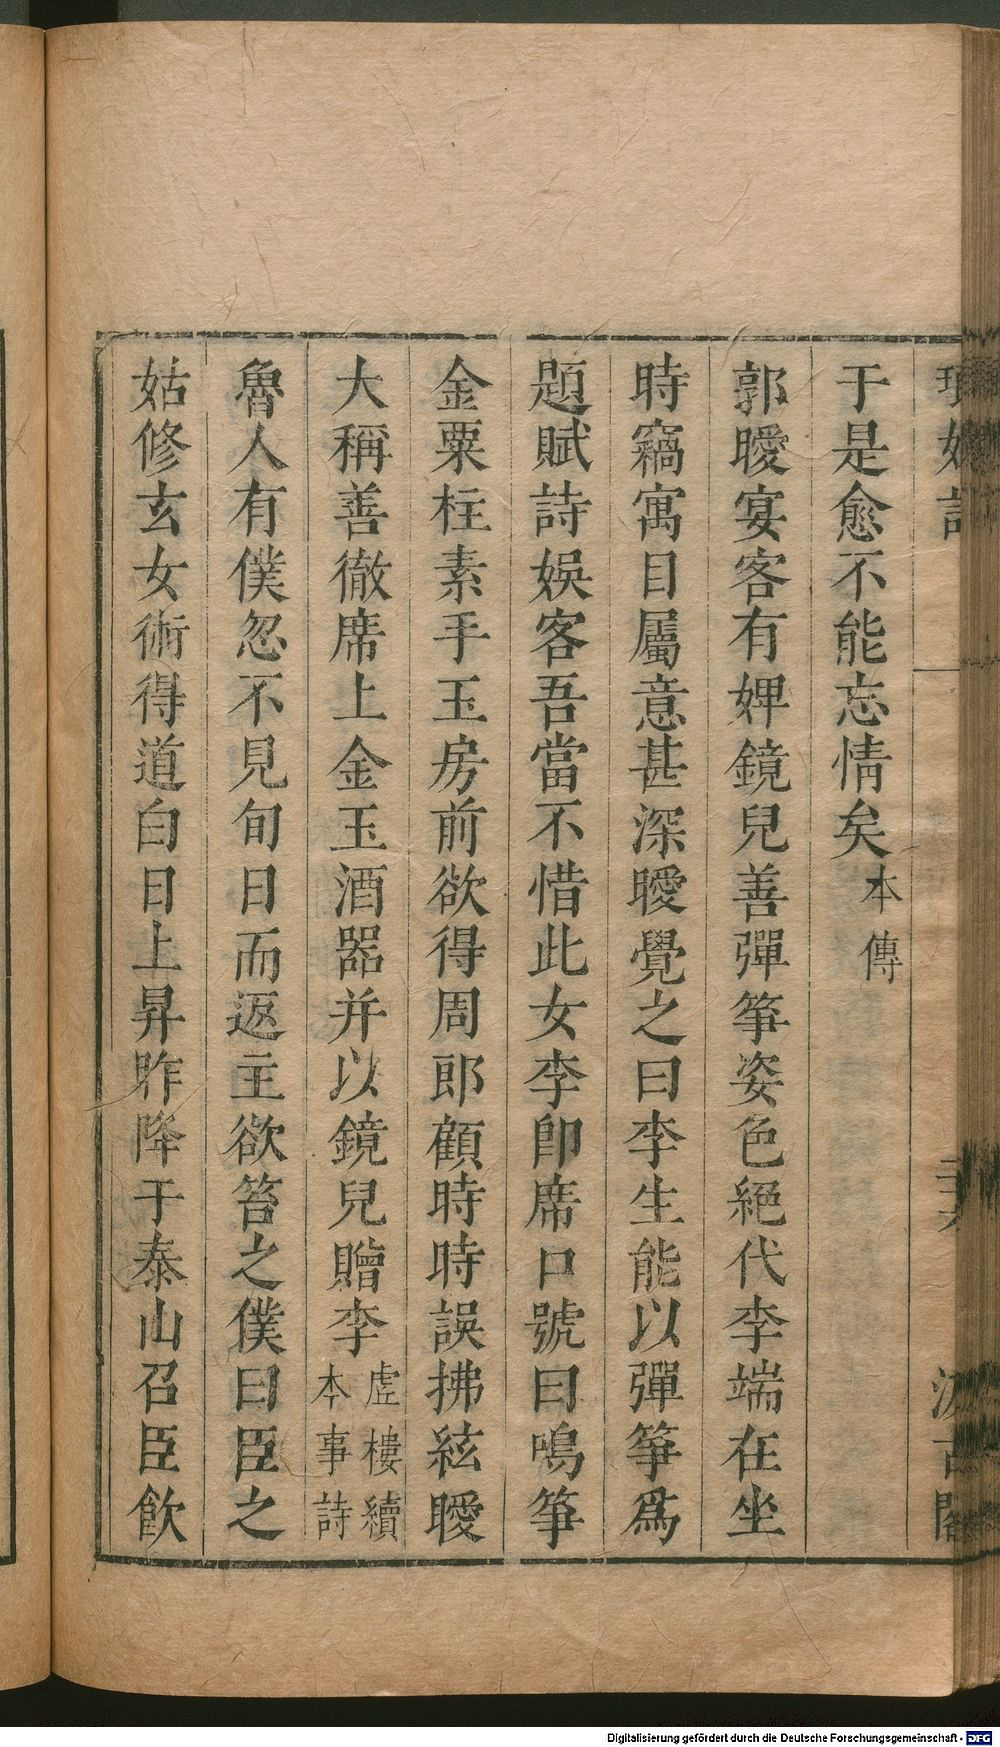 于是愈不能忘情矣本傳
郭曖宴客有婢鏡兒善彈箏姿色絕代李端在坐
時竊寓目屬意甚深曖覺之曰李生能以彈箏爲
題賦詩娛客吾當不惜此女李卽席口號曰鳴箏
金粟柱素手玉房前欲得周郎顧時時誤拂絃曖
大稱善徹席上金玉酒器并以鏡兒贈李虛樓續本事詩
魯人有僕忽不見旬日而返主欲笞之僕曰臣之
姑修玄女術得道白日上昇昨降于泰山召臣飮
Digitalisierung gefördert durch die Deutsche Forschungsgemeinschaft - DFG